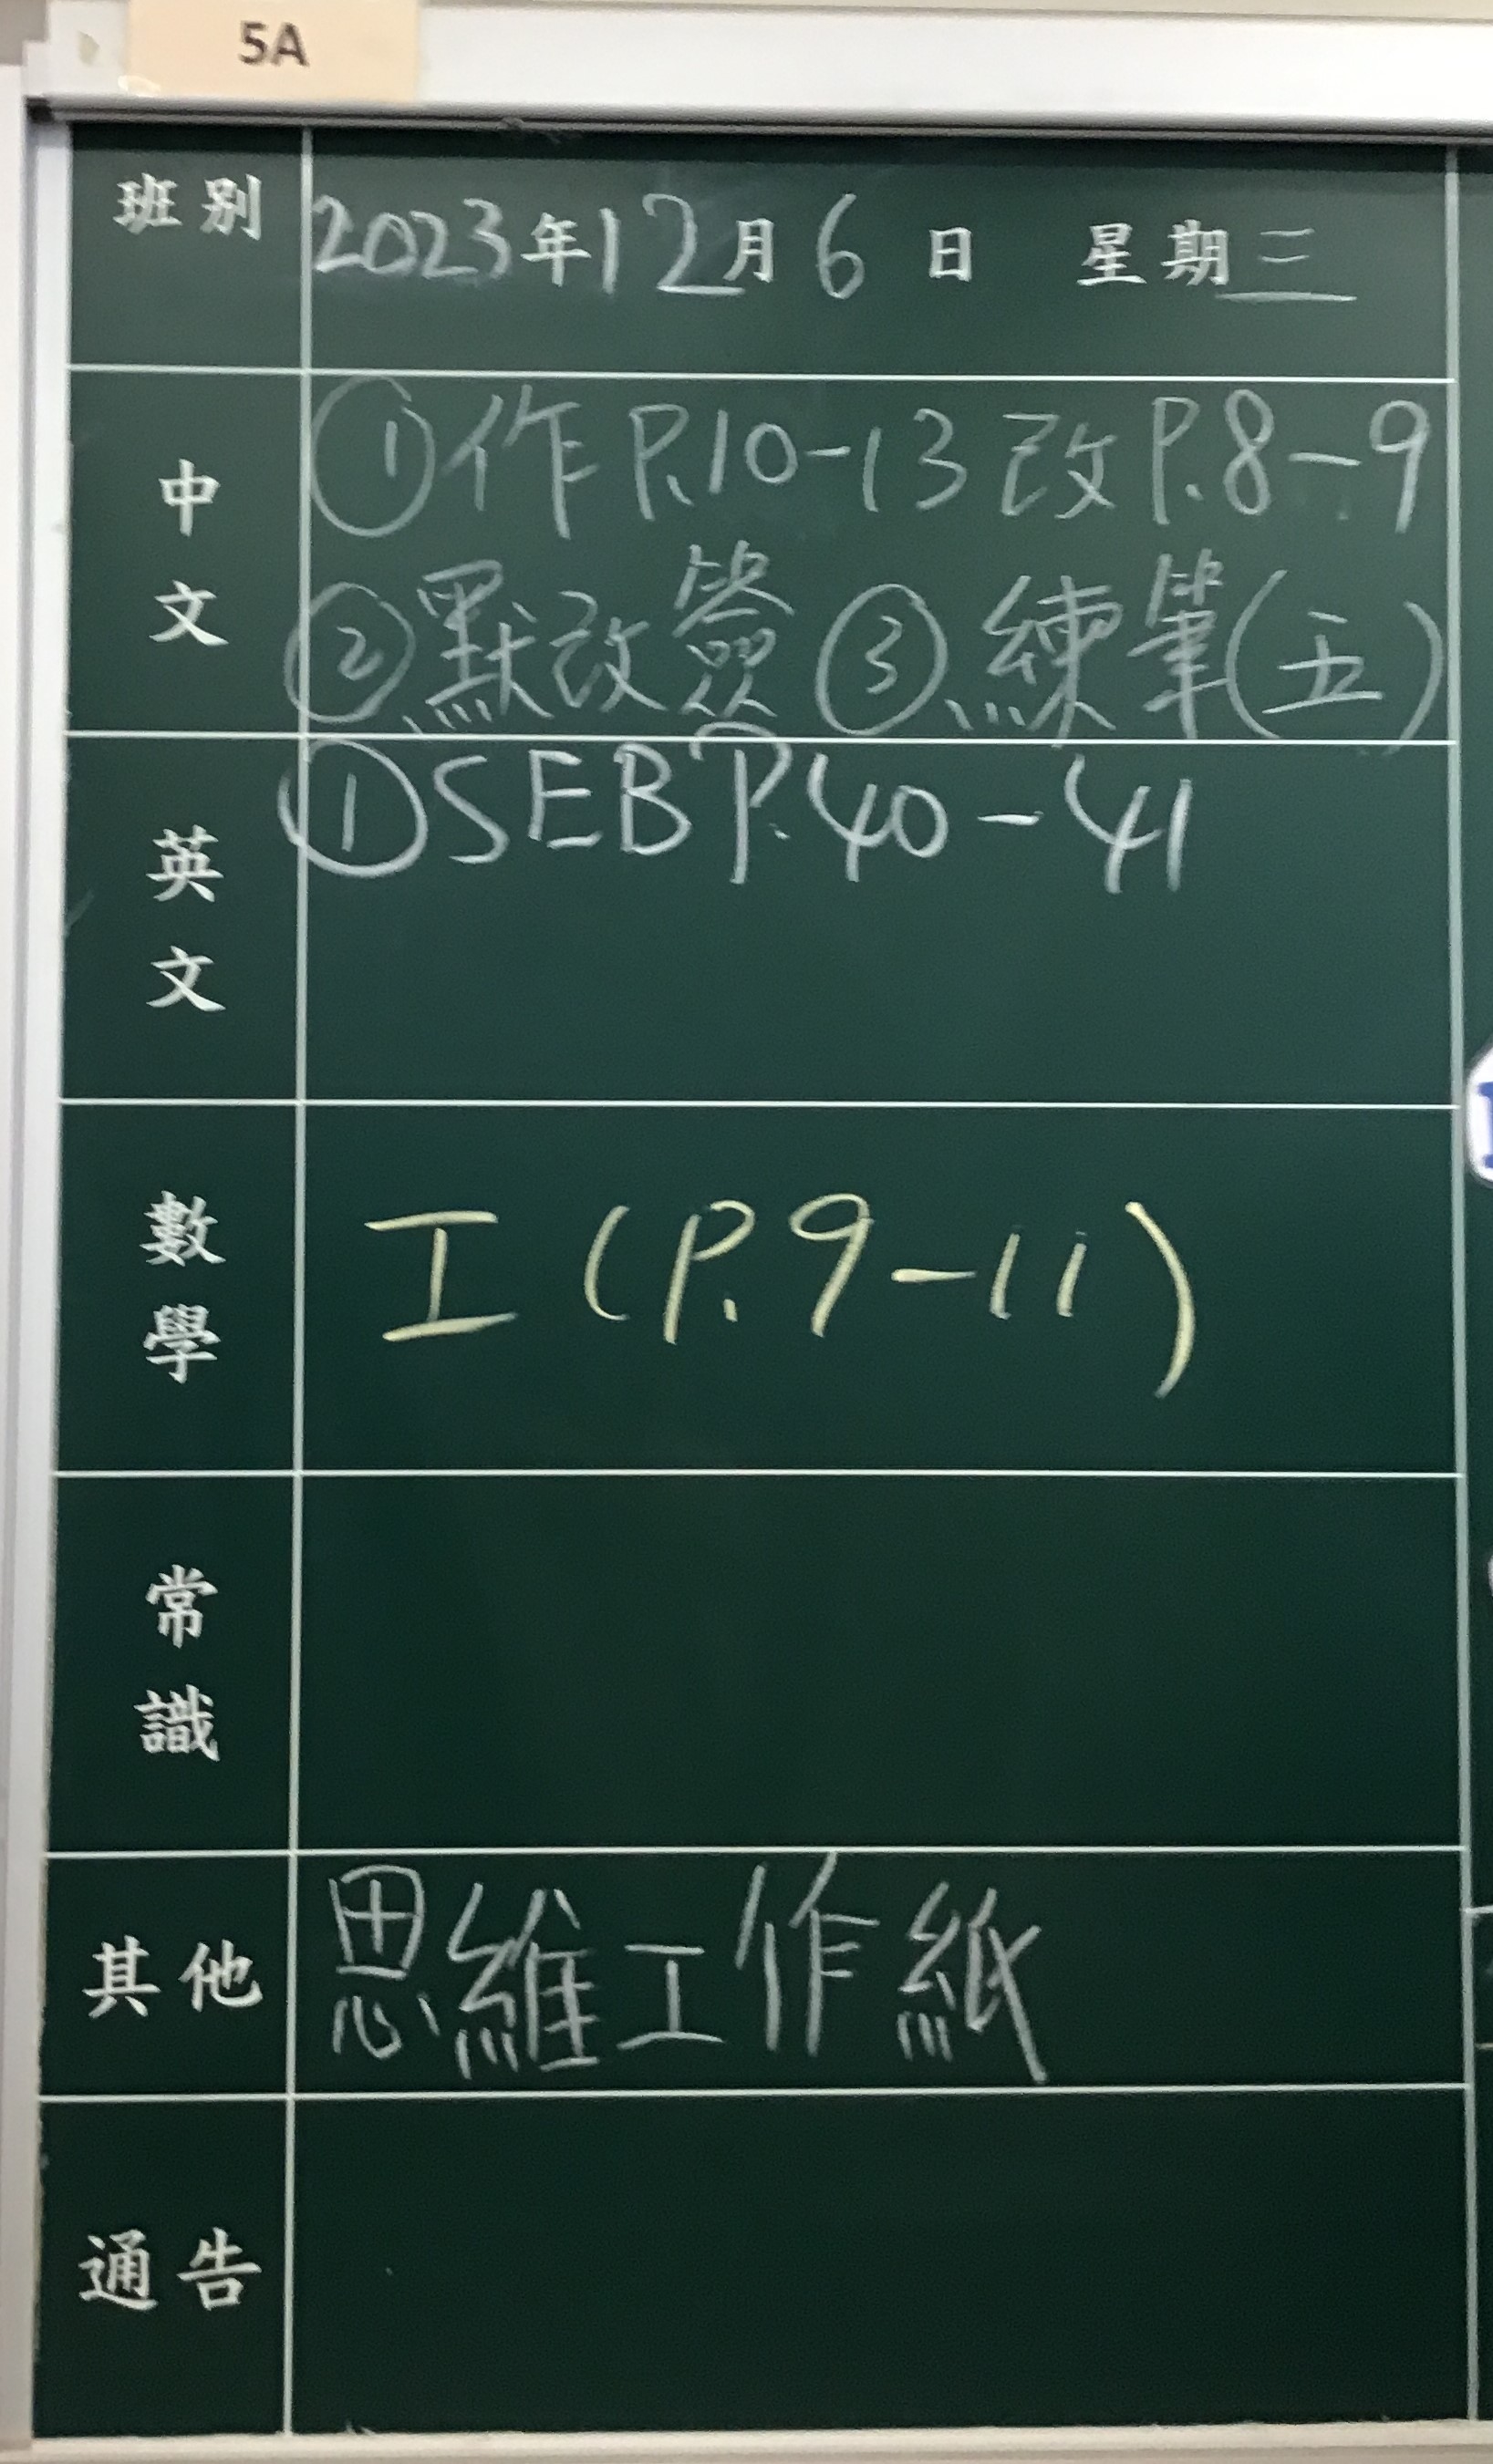 5A
班別 2023年12月6日 星期三
中文
①作P.10-13改P.8-9
②默改簽③練筆(五)
英文
①SEB P.40-41
數學
工(P.9-11)
常識
其他 思維工作紙
通告